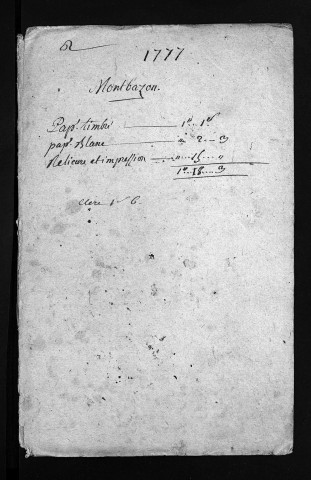 1777
Montbazon.
Pap.r timbré 1# 1s
pap.r Blanc " 2 3
Relieure et impression " 15 "
1# 18 3
Clerc 1 6